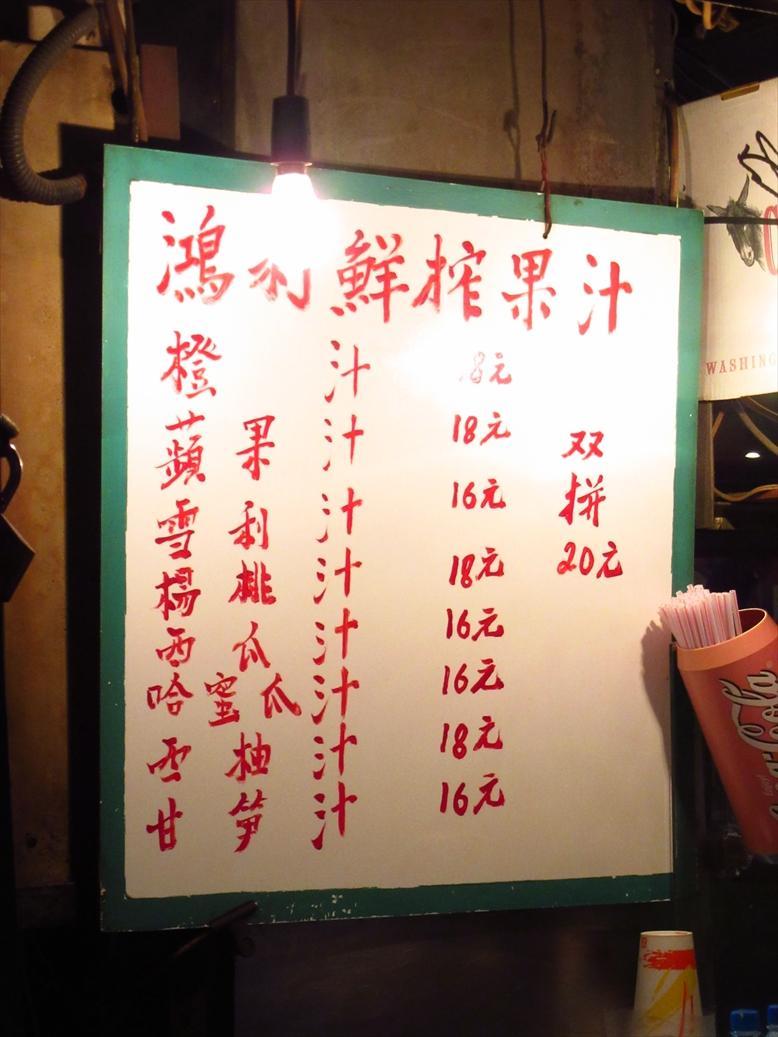 鴻利鮮搾果汁
橙汁 18元
蘋果汁 18元
雪利汁 16元
楊桃汁 18元
西瓜汁 16元
哈蜜瓜汁 16元
西柚汁 18元
甘笋汁 16元
双
拼
20元
WASHING